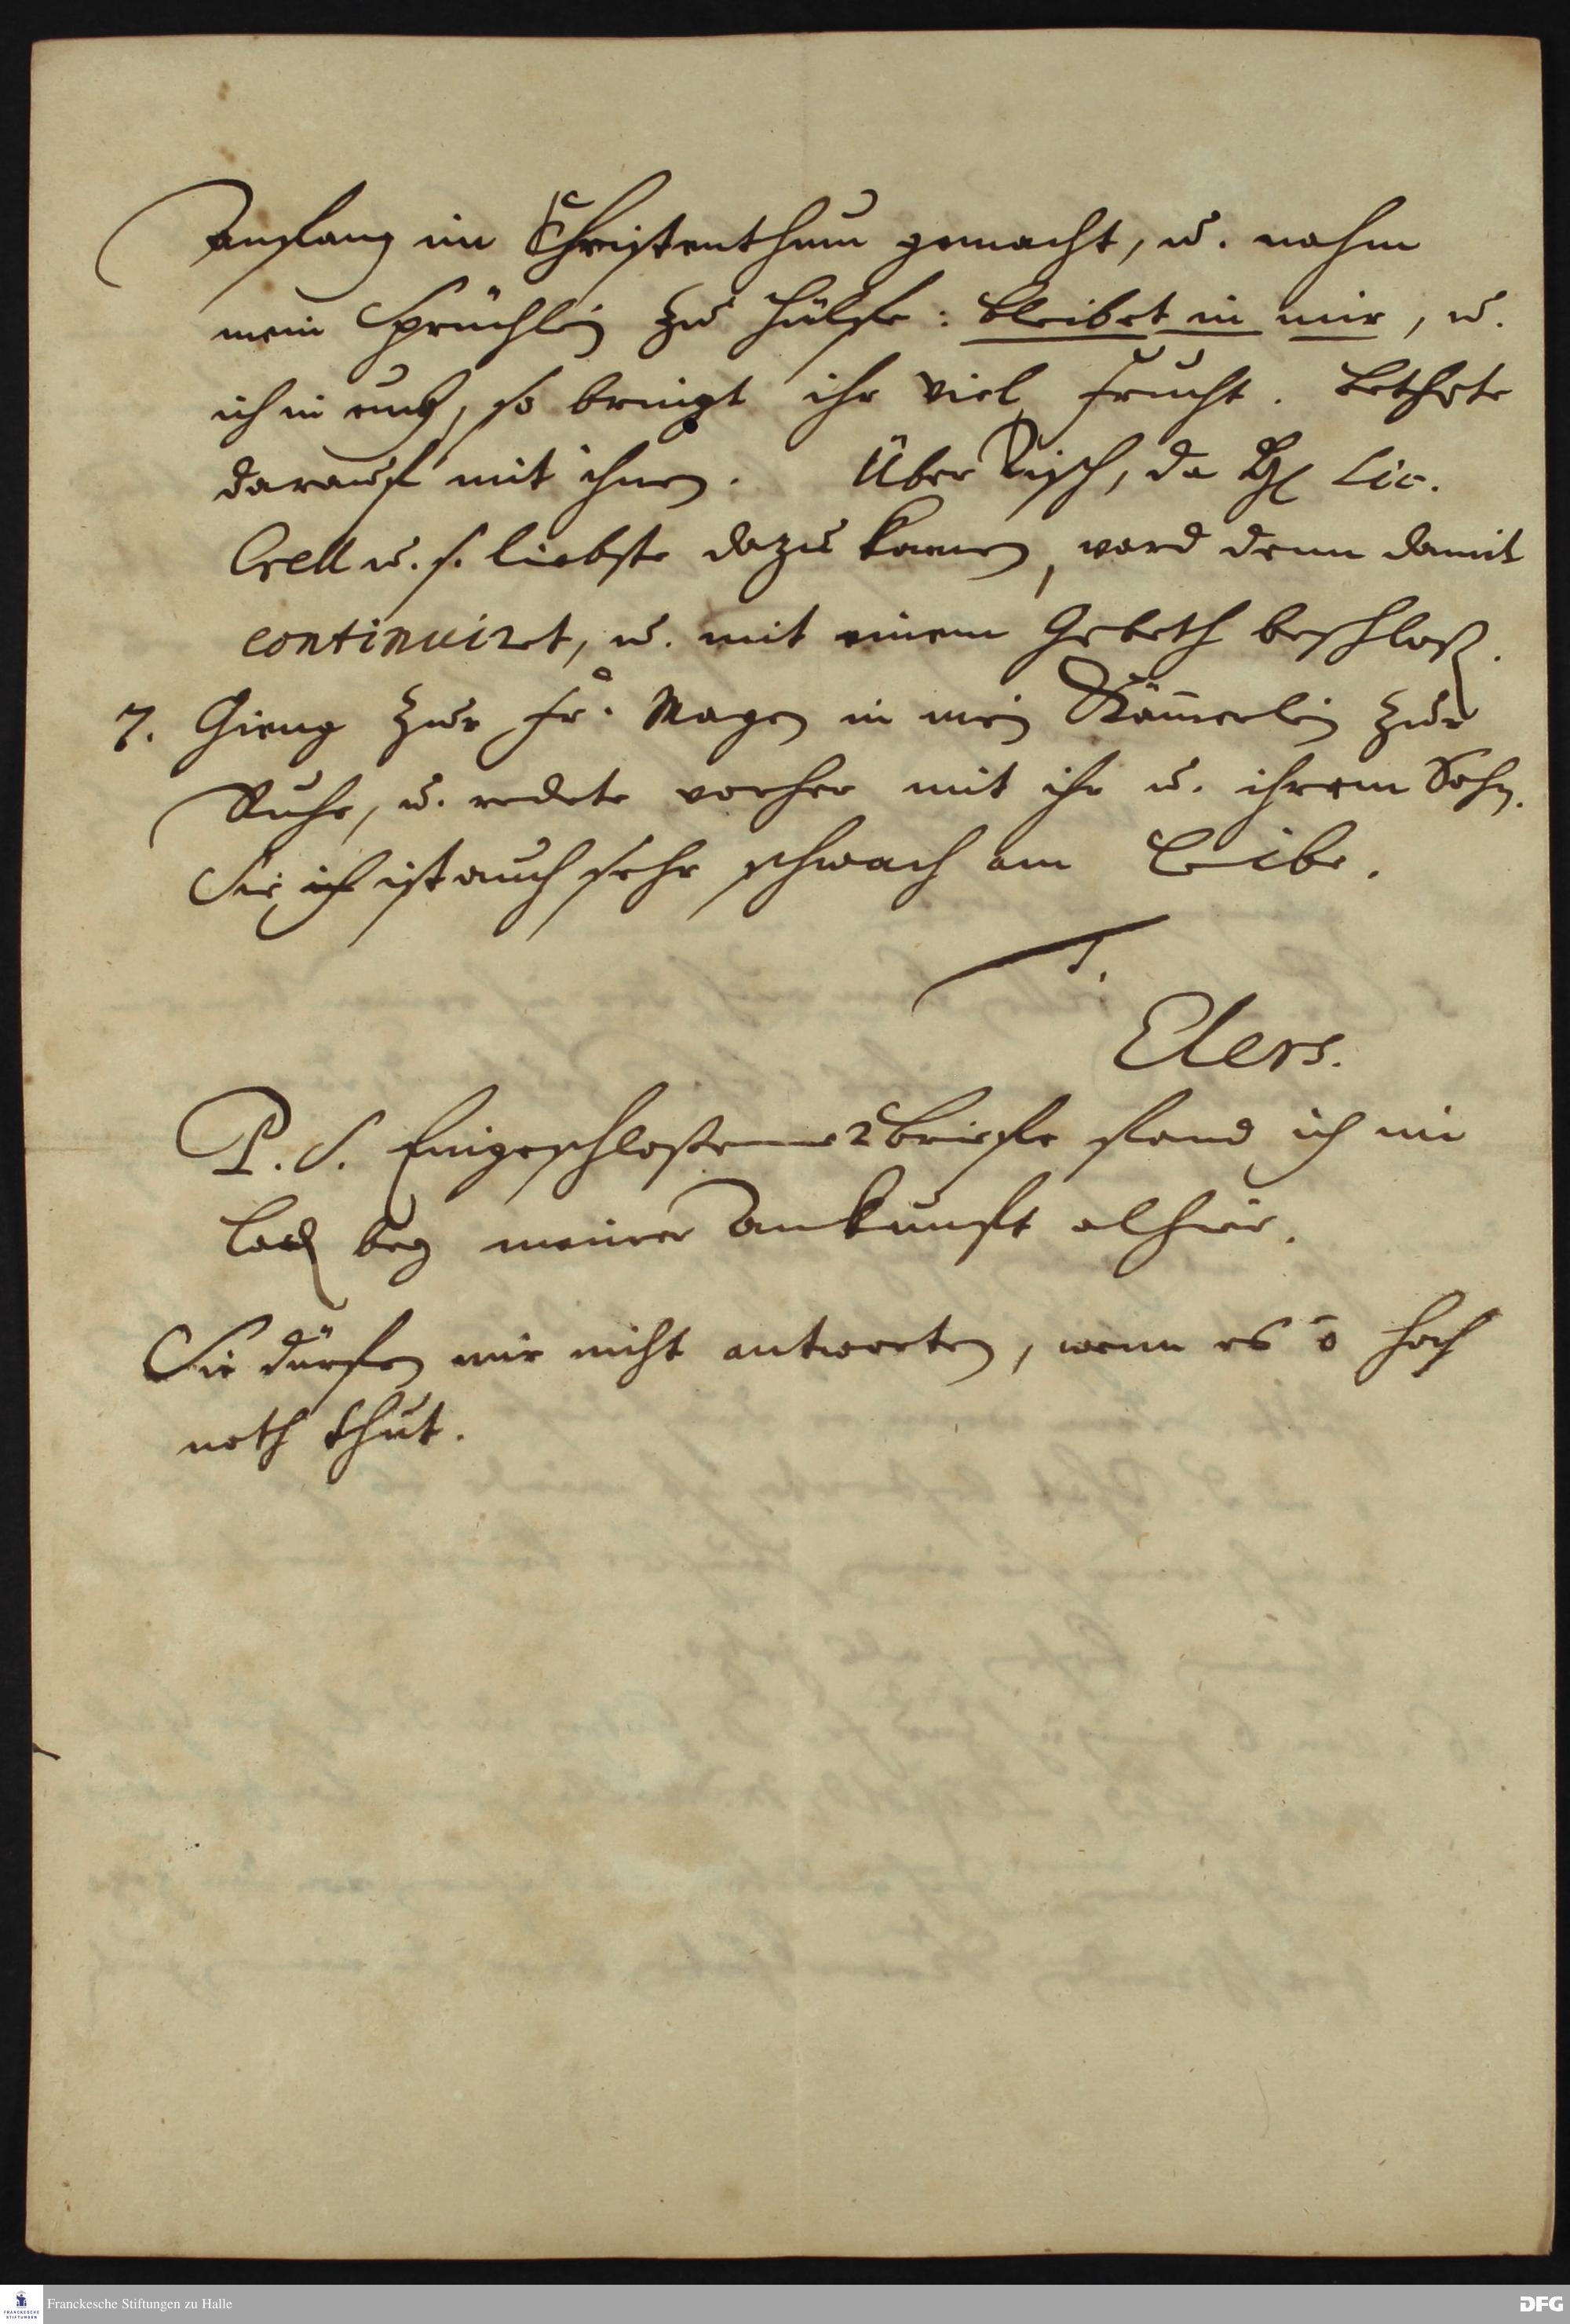 anfang im Christenthum gemacht, u. nahm
mein Sprüchlein zu Hülffe: bleibet in mir, u.
ich in euch, so bringt ihr viel frucht. Bethete
darauf mit ihnen. Über Tisch, da H. Lic.
Crell u. s. liebste dazu kamen, ward denn damit
continuiret, u. mit einem Gebeth beschloß.
7. Gieng zur fr. Magen in mein Kämerlein zur
Ruhe, u. redete vorher mit ihr u. ihrem Sohn.
Sie ist auch sehr schwach am Leibe.
T.
Elers.
P. S. Eingeschloßene 2 briefe fand ich im
bey meiner Ankunft alhier.
Sie dürfen mir nicht antworten, wenn es õ hoch
noth thut.
Franckesche Stiftungen zu Halle
FRANCKESCHE STIFTUNGEN
DFG